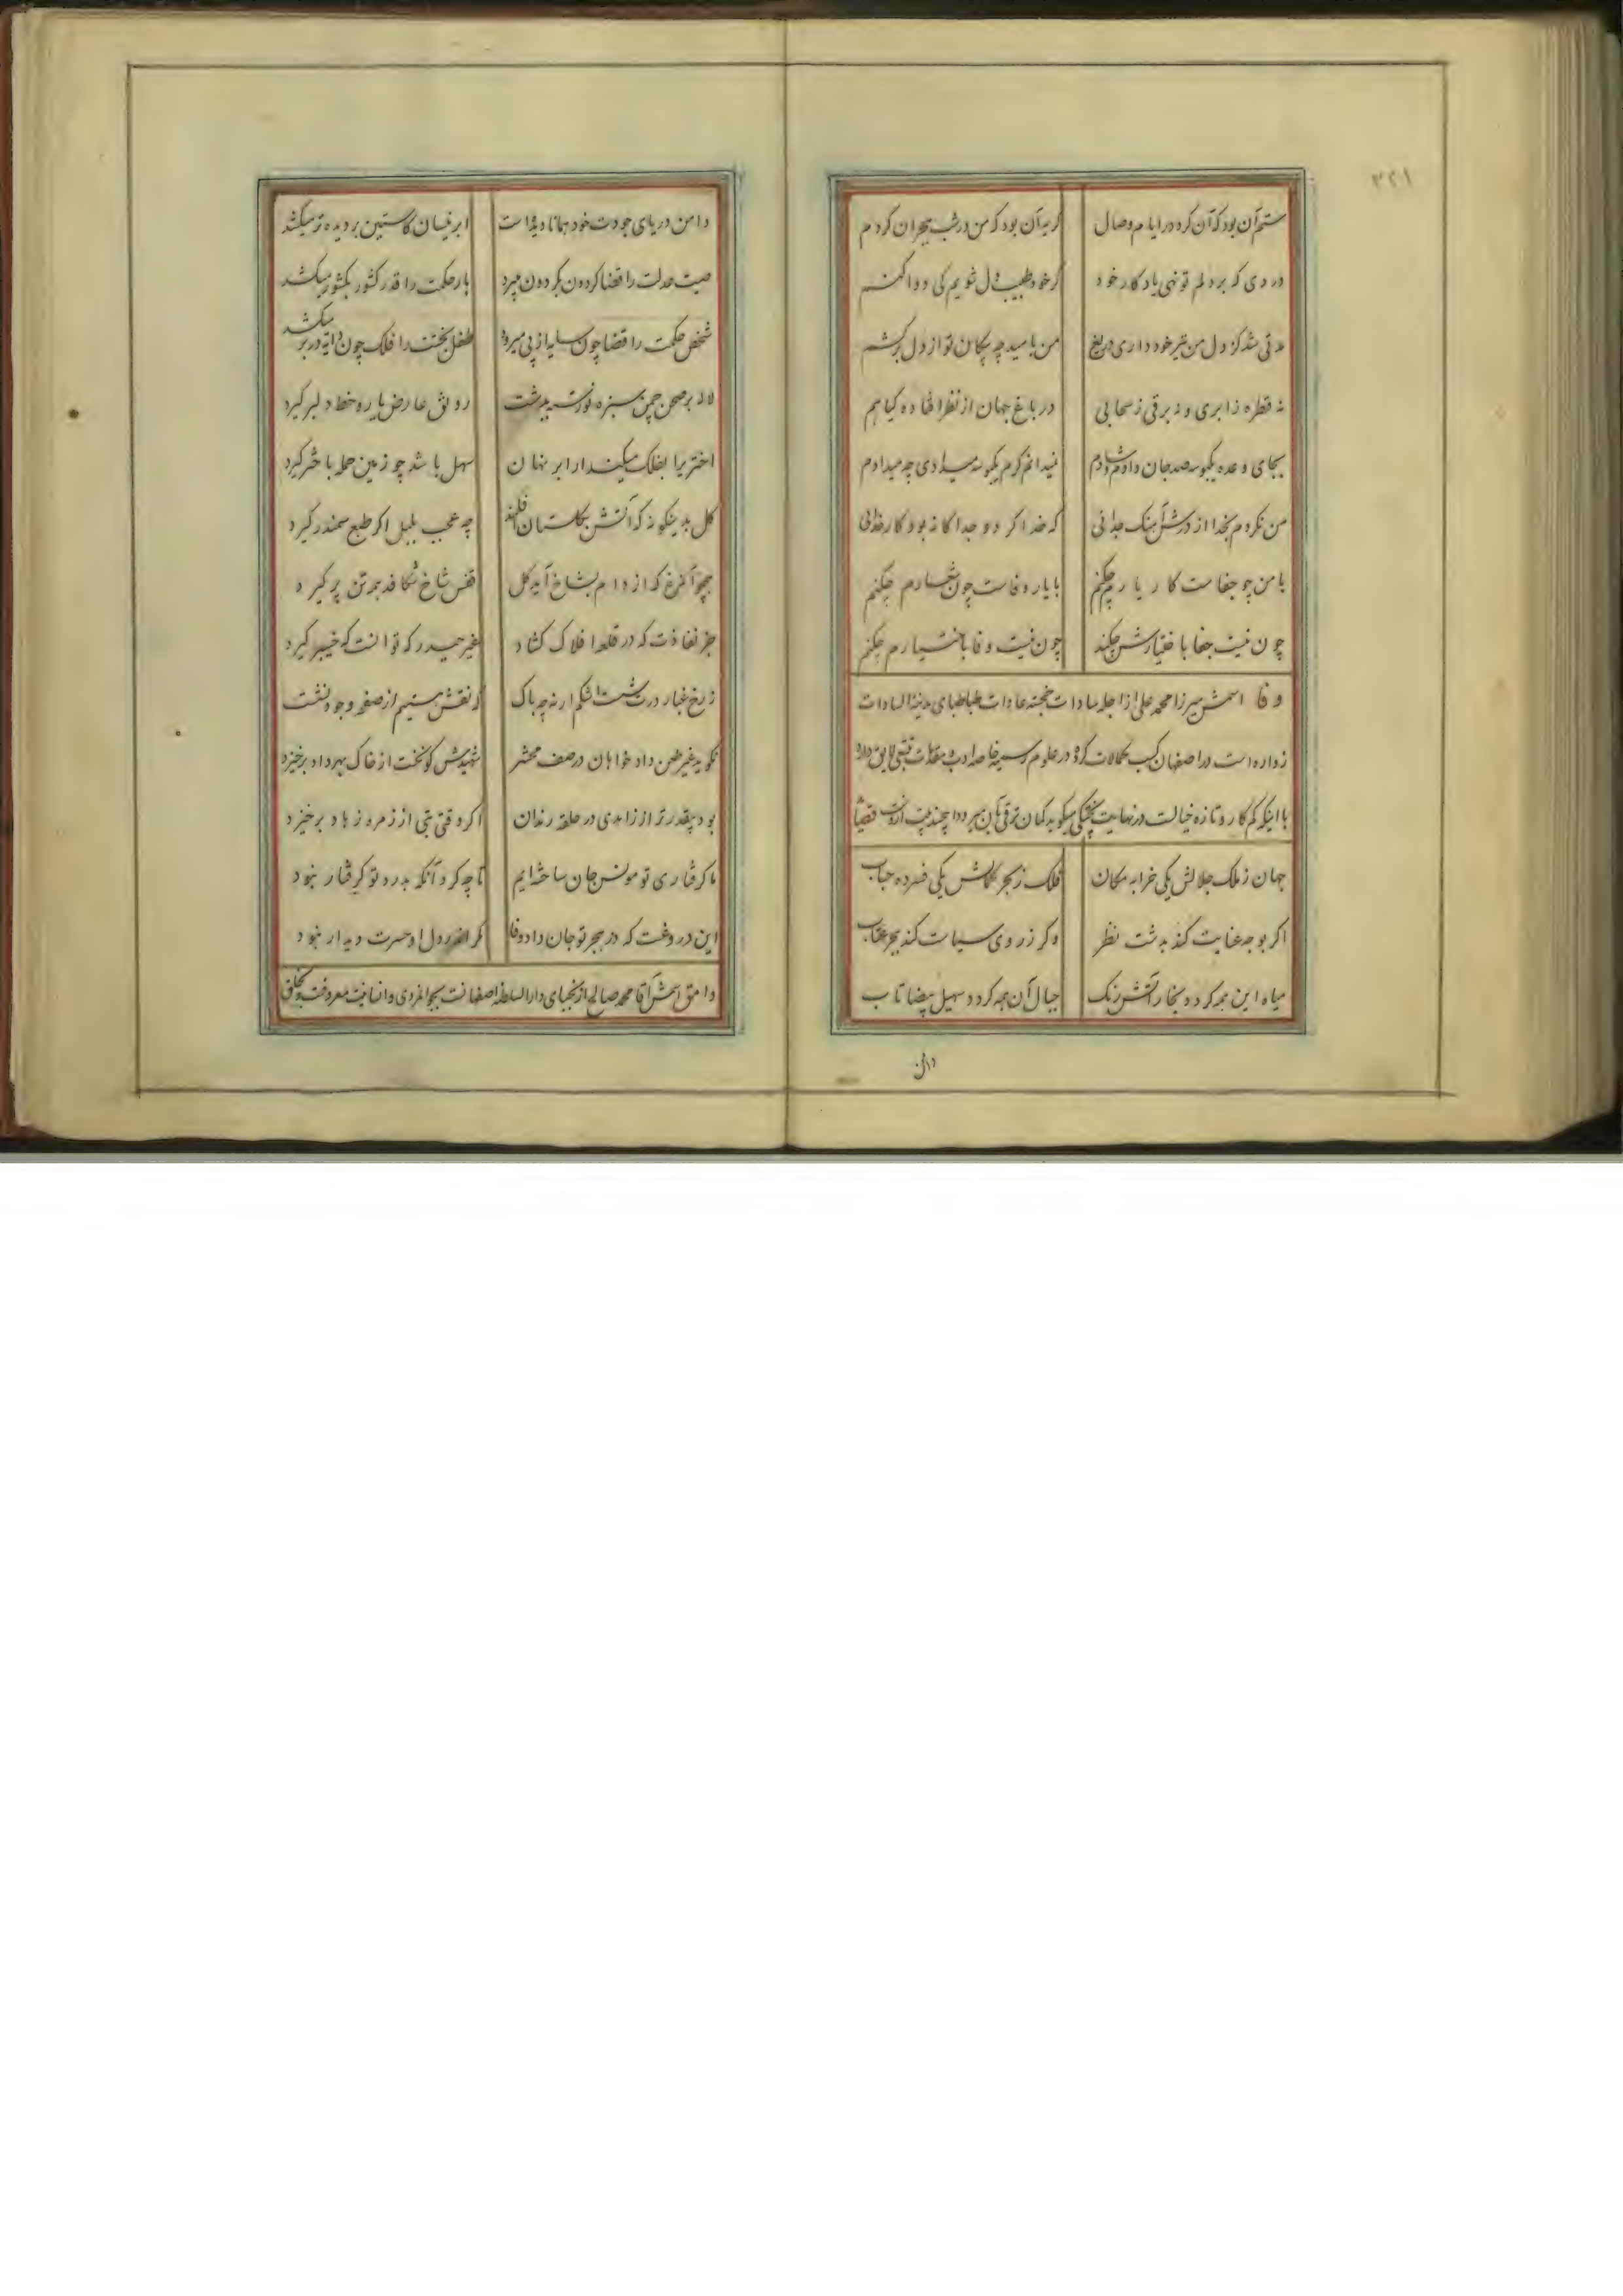 ۳۲۱
ستم آن بود که آن کرد در ایام وصال کریه آن بود که من در شب هجران کردم
دردی که بر دلم تو نهی یادکار خود کر خود طبیب دل شویم کی دوا کنم
مدتی شد کز دل من تیر خود داری دریغ من بامید چه پیکان تو از دل برکشم
نه قطره ز ابری و نه برقی ز سحابی در باغ جهان از نظر افتاده کیاهم
بجای وعده یکبوسه صد جان دادم و شادم نمیدانم کرم یکبوسه میدادی چه میدادم
من نکردم بخدا از در آن سنک جدائی که خدا کر دو جدا کانه بود کار خدائی
با من چو جفاست کار یارم چکنم با یار وفاست چون شعارم چکنم
چون نیست جفا باختیارش چکند چون نیست وفا باختیارم چکنم
وفا اسمش میرزا محمد علی از اجله سادات خجسته عادات طباطبای مدینة السادات
زواره است در اصفهان کسب کمالات کرده در علوم رسمیه خاصه ادب و مقامات تتبعی لایق دارد
با اینکه کم کار و تازه خیالست در نهایت پختکی میکوید کمان ترقی بآن میرود این چند بیت از اوست
جهان ز ملک جلالش یکی خرابه مکان فلک ز بحر کمالش یکی فسرده حباب
اکر بوجه عنایت کند بدشت نظر وکر ز روی سیاست کند ببحر عتاب
میاه این همه کردد بخار آتش رنک جبال آن همه کردد سهیل بیضا تاب
دامن
دامن دریای جودت خود همانا دیده است ابر نیسان کاستین بر دیده تر میکشد
صیت عدلت را قضا کردون بکردون میبرد بار حکمت را قدر کشور بکشور میکشد
شخص حکمت را قضا چون سایه از پی میرود طفل بختت را فلک چون دایه در بر میکشد
لاله بر صحن چمن سبزه نورسته بدشت رونق عارض یار و خط دلبر کیرد
اختر یرا بفلک میکند ار ابر نهان سهل باشد چو زمین جمله باختر کیرد
کل بدینکونه که آتش بکلستان افکند چه عجب بلبل اکر طبع سمندر کیرد
همچو آنمرغ که از دام بشاخ آید کل قفس شاخ شکافد همه تن پر کیرد
جز نفاذت که در قلعه افلاک کشاد غیر حیدر که توانست که خیبر کیرد
ز رخ غبار درت شست اشکم ار نه چه باک که نقش هستیم از صفحه وجود نشست
نکوید غیر طعن داد خواهان در صف محشر شهیدش کو نخست از خاک بهر داد برخیزد
بود بیقدرتر از زاهدی در حلقه رندان اکر وقتی بتی از زمره زهاد برخیزد
ما کرفتاری تو مونس جان ساخته ایم تا چه کرد آنکه بدرد تو کرفتار نبود
این دروغست که در هجر تو جان داد وفا کر اندر دل او حسرت دیدار نبود
وامق اسمش آقا محمد صالح از نجبای دارالسلطنه اصفهانست بجوانمردی و انسانیت معروفست و بخلق